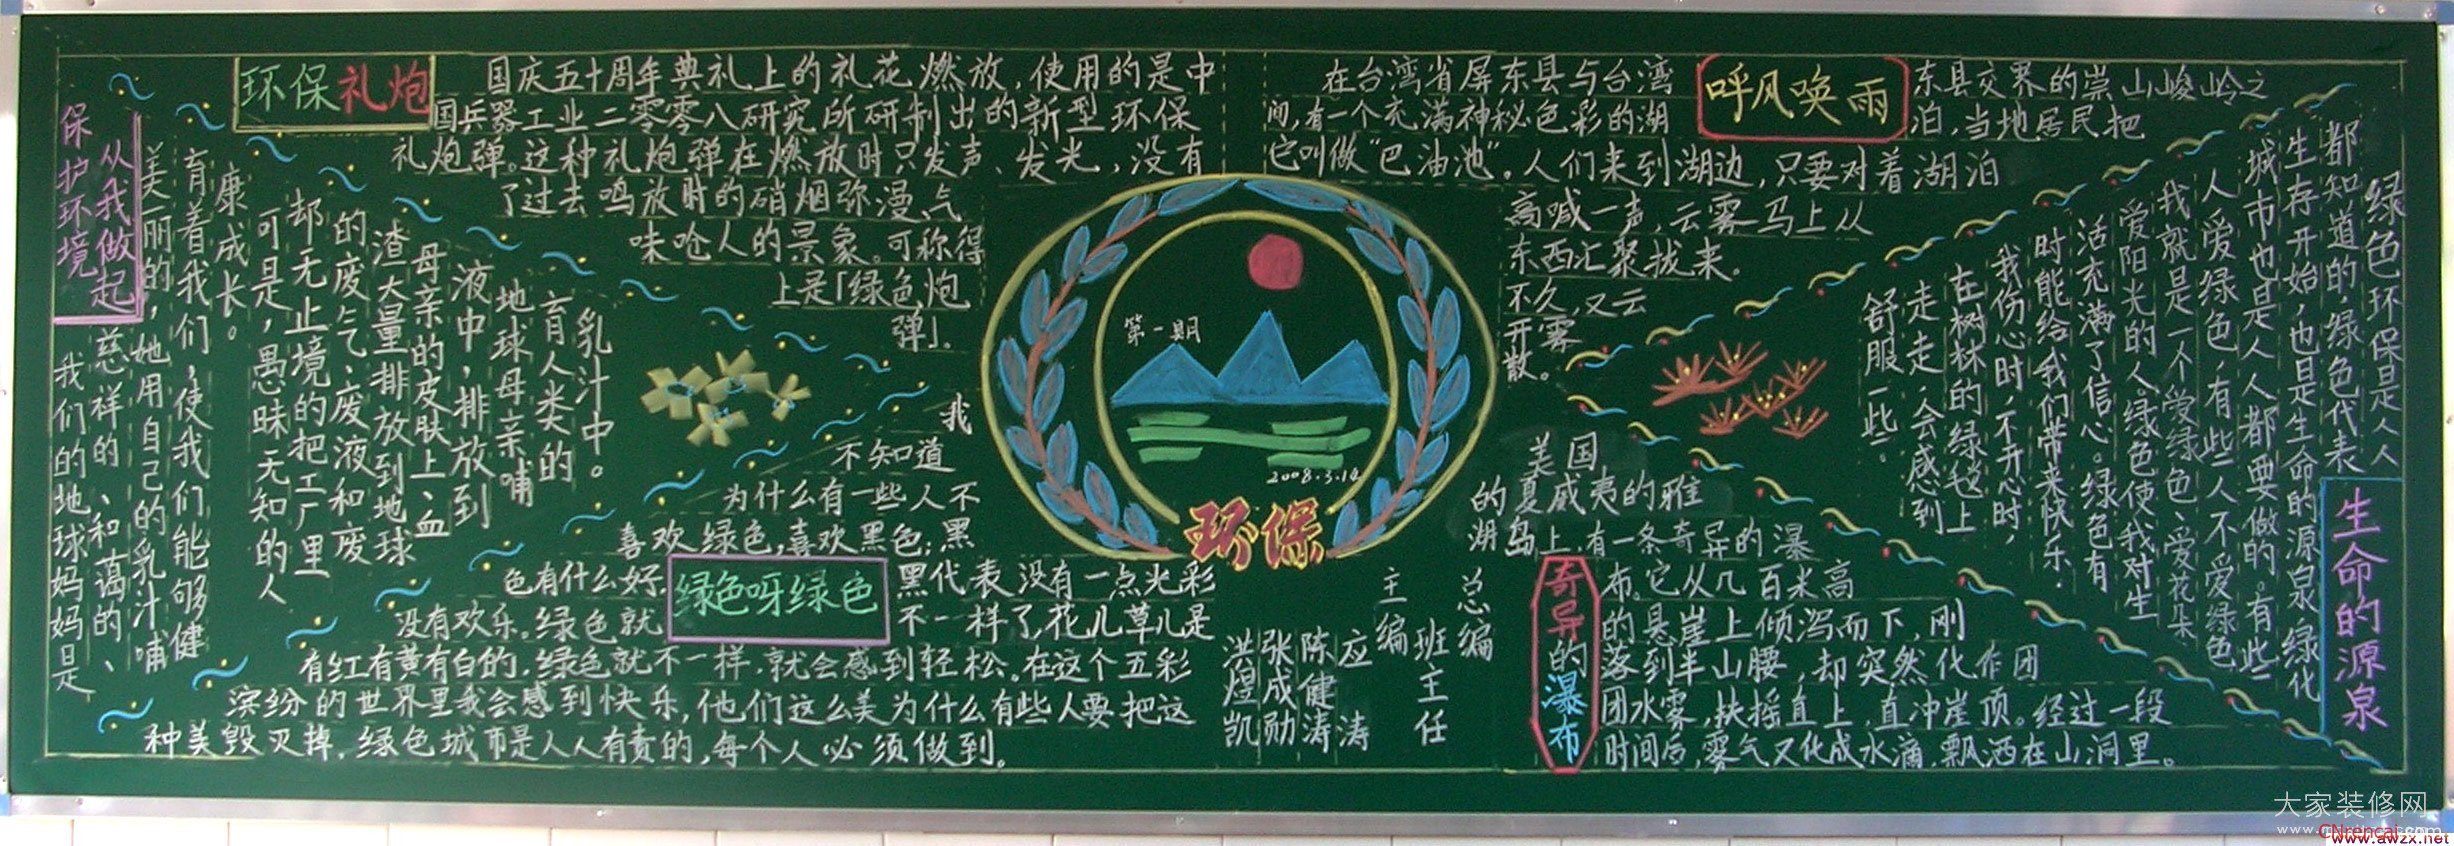 环保礼炮
国庆五十周年典礼上的礼花燃放，使用的是中
国兵器工业二零零八研究所研制出的新型环保
礼炮弹。这种礼炮弹在燃放时只发声、发光，没有
了过去鸣放时的硝烟弥漫、气
味呛人的景象。可称得
上是「绿色炮
弹」.
呼风唤雨
在台湾省屏东县与台湾
东县交界的崇山峻岭之
间，有一个充满神秘色彩的湖
泊，当地居民把
它叫做“巴油池”。人们来到湖边，只要对着湖泊
高喊一声，云雾马上从
东西汇聚拢来。
不久，又云
开雾
散。
保护环境
从我做起
我们的地球妈妈是
慈祥的、和蔼的、
美丽的，她用自己的乳汁哺
育着我们，使我们能够健
康成长。
可是，愚昧无知的人
却无止境的把工厂里
的废气、废液和废
渣大量排放到地球
母亲的皮肤上、血
液中，排放到
地球母亲哺
育人类的
乳汁中。
第一期
2008.3.14
环保
绿色呀绿色
我
不知道
为什么有一些人不
喜欢绿色，喜欢黑色；黑
色有什么好.
黑代表没有一点光彩
没有欢乐。绿色就
不一样了，花儿草儿是
有红有黄有白的，绿色就不一样，就会感到轻松。在这个五彩
滨纷的世界里我会感到快乐，他们这么美为什么有些人要把这
种美毁灭掉，绿色城市是人人有责的，每个人必须做到。
总编
班主任
主编
应涛
陈健涛
张成勋
洪煜凯
奇异的瀑布
美国
的夏威夷的雅
湖岛上有一条奇异的瀑
布。它从几百米高
的悬崖上倾泻而下，刚
落到半山腰，却突然化作团
团水雾，扶摇直上，直冲崖顶。经过一段
时间后，雾气又化成水滴，飘洒在山洞里。
生命的源泉
绿色环保是人人
都知道的，绿色代表
生存开始，也是生命的源泉，绿化
城市也是人人都要做的。有些
人爱绿色，有些人不爱绿色
我就是一个爱绿色、爱花朵
爱阳光的人。绿色使我对生
活充满了信心。绿色有
时能给我们带来快乐.
我伤心时，不开心时，
在树林的绿毯上
走走走，会感到
舒服一些。
大家装修网
CNrencai
www.awzx.net